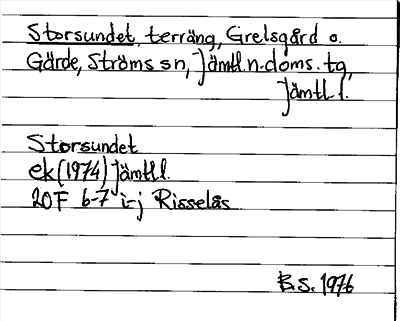 Storsundet, terräng, Grelsgård o.
Gärde, Ströms sn, Jämtl.n.doms.tg,
Jämtl.l.
Storsundet
ek (1974) Jämtl l.
20F 6-7 i-j Risselås
B.S. 1976